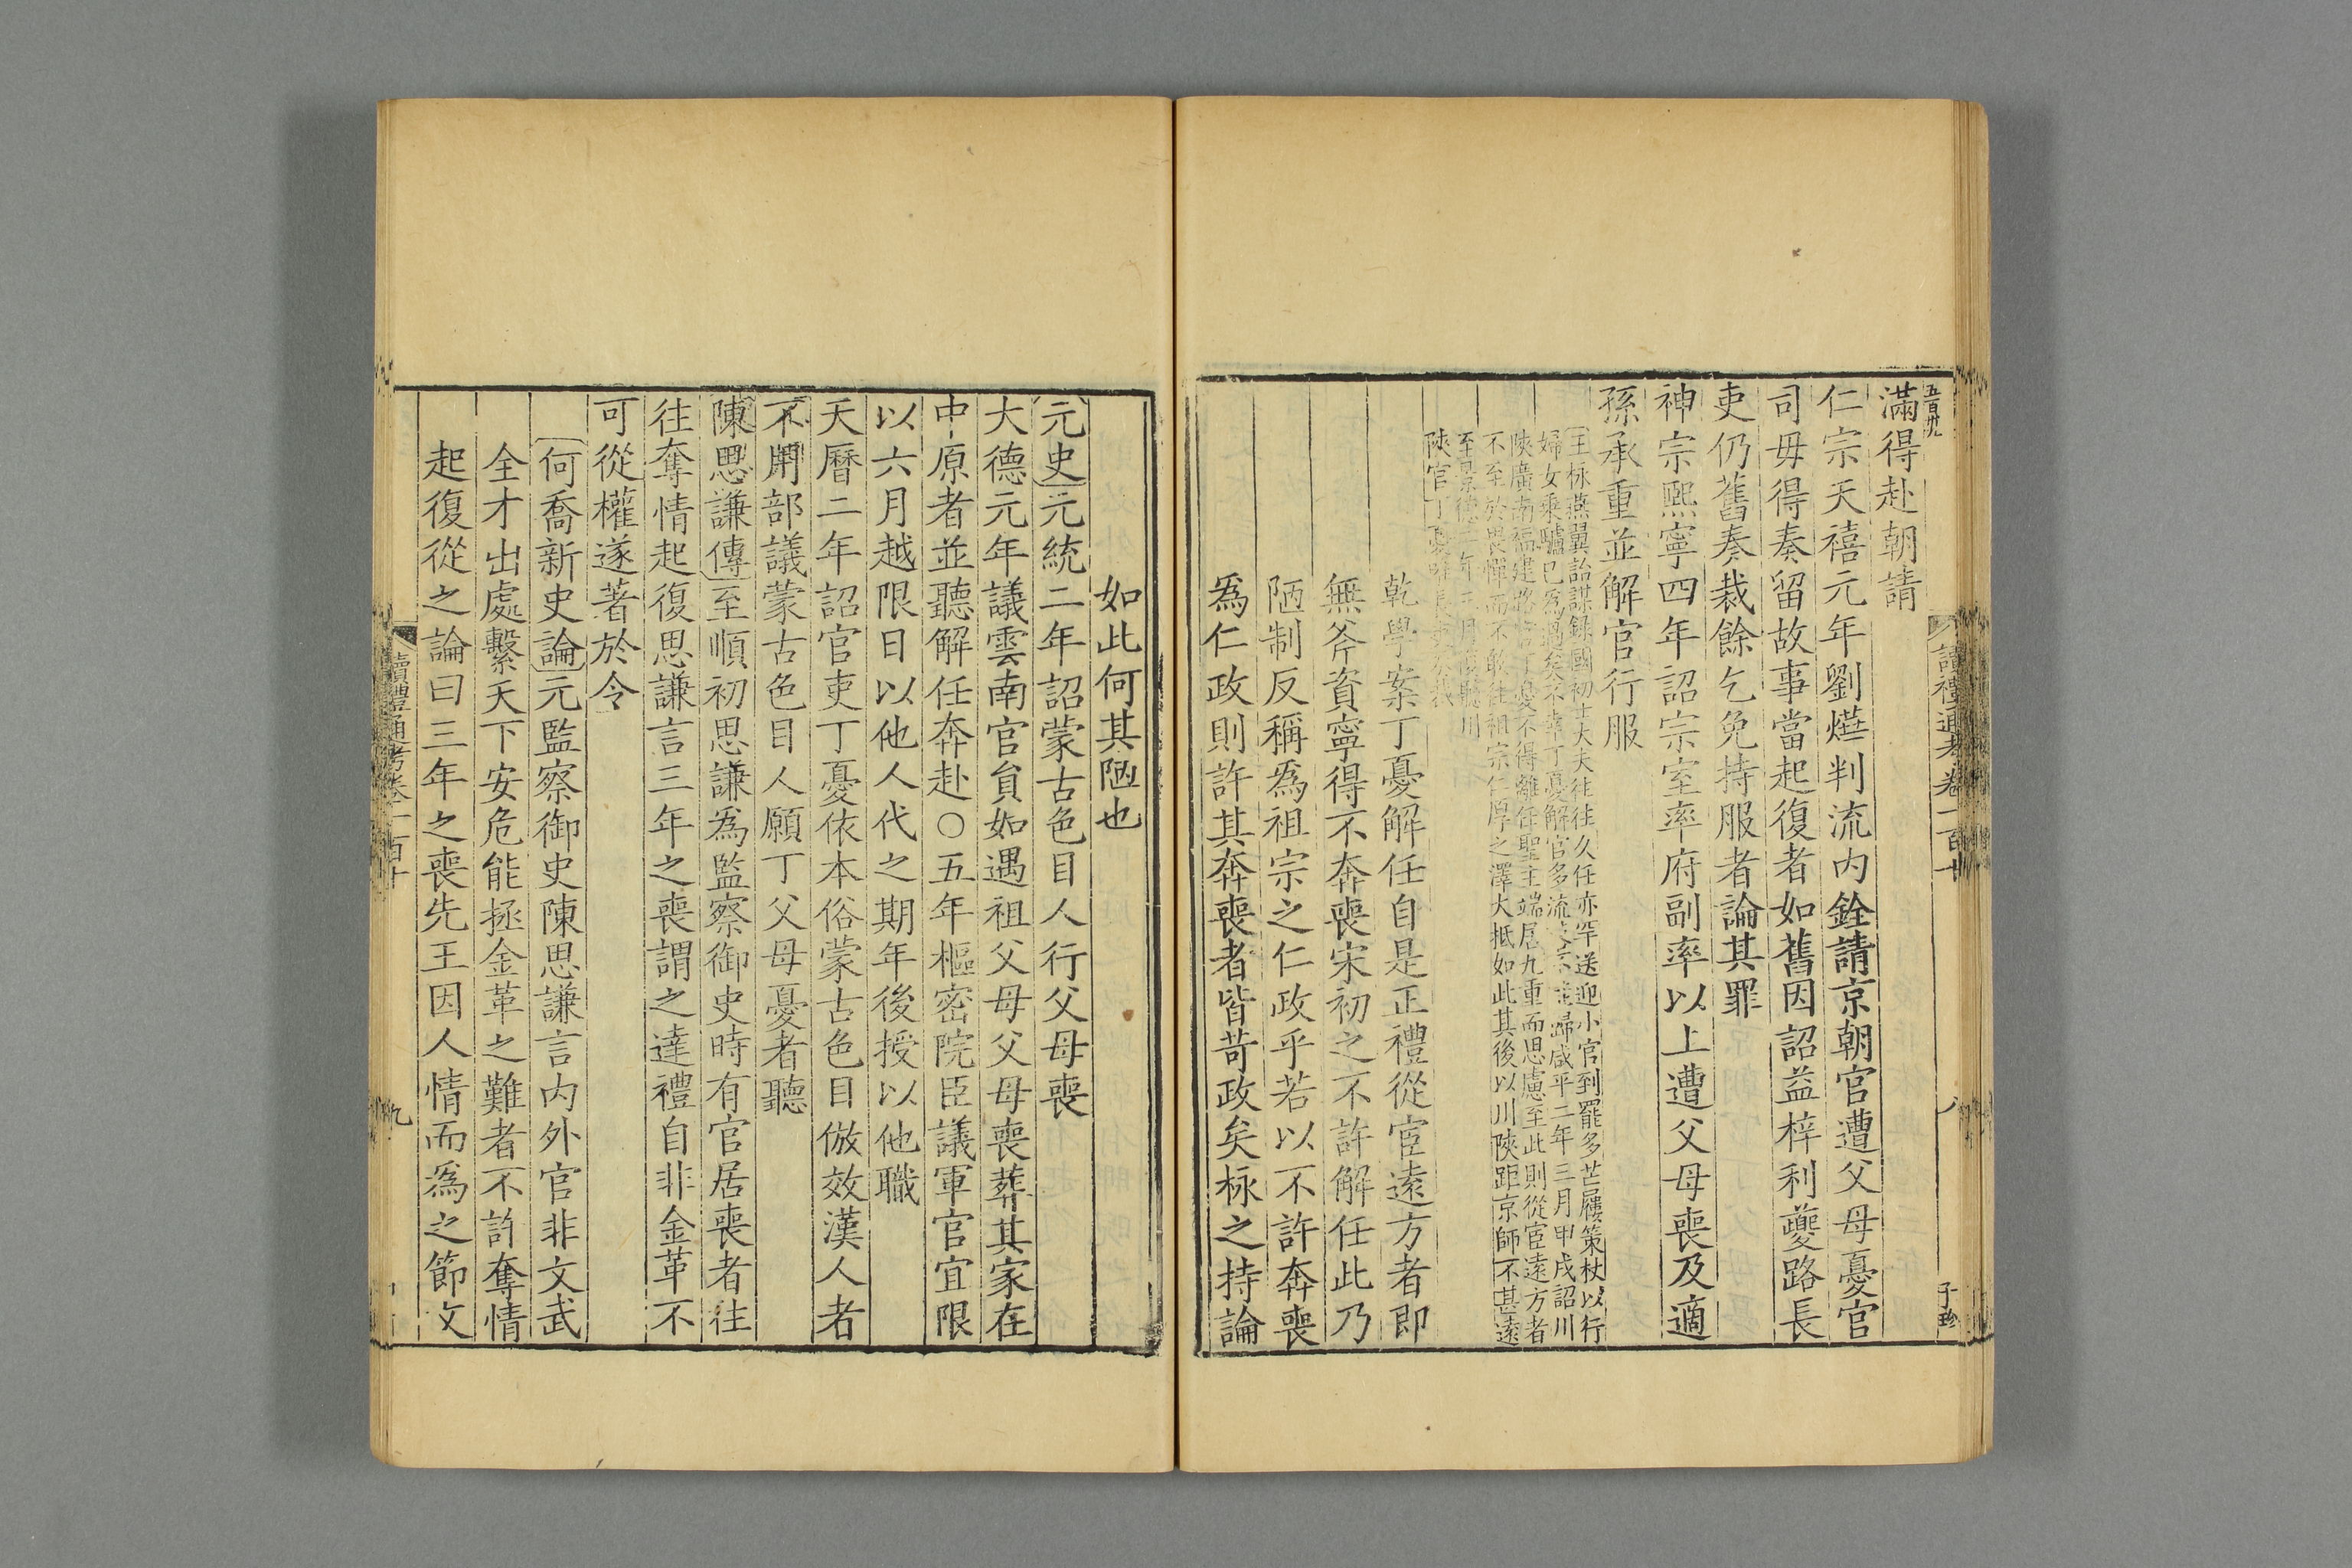 五百卅九
滿得赴朝請
仁宗天禧元年劉燁判流内銓請京朝官遭父母憂官
司毋得奏留故事當起復者如舊因詔益梓利夔路長
吏仍舊奏裁餘乞免持服者論其罪
神宗熙寧四年詔宗室率府副率以上遭父母喪及適
孫承重並解官行服
王栐燕翼詒謀録國初士大夫往往久任亦罕送迎小官到罷多芒屨策杖以行
婦女乘驢已爲過矣不幸丁憂解官多流落不能歸咸平二年三月甲戌詔川
陝廣南福建路官丁憂不得離任聖主端居九重而思慮至此則從宦遠方者
不至於畏憚而不敢往祖宗仁厚之澤大抵如此其後以川陝距京師不甚遠
至景德二年三月復聽川
陝官丁憂
乾學案丁憂解任自是正禮從宦遠方者即
無斧資寧得不奔喪宋初之不許解任此乃
陋制反稱爲祖宗之仁政乎若以不許奔喪
爲仁政則許其奔喪者皆苛政矣栐之持論
讀禮通考卷一百十
八
子珍
如此何其陋也
元史元統二年詔蒙古色目人行父母喪
大德元年議雲南官員如遇祖父母父母喪葬其家在
中原者並聽解任奔赴○五年樞密院臣議軍官宜限
以六月越限日以他人代之期年後授以他職
天曆二年詔官吏丁憂依本俗蒙古色目倣效漢人者
不用部議蒙古色目人願丁父母憂者聽
陳思謙傳至順初思謙爲監察御史時有官居喪者往
往奪情起復思謙言三年之喪謂之達禮自非金革不
可從權遂著於令
何喬新史論元監察御史陳思謙言内外官非文武
全才出處繫天下安危能拯金革之難者不許奪情
起復從之論曰三年之喪先王因人情而爲之節文
讀禮通考卷一百十
九